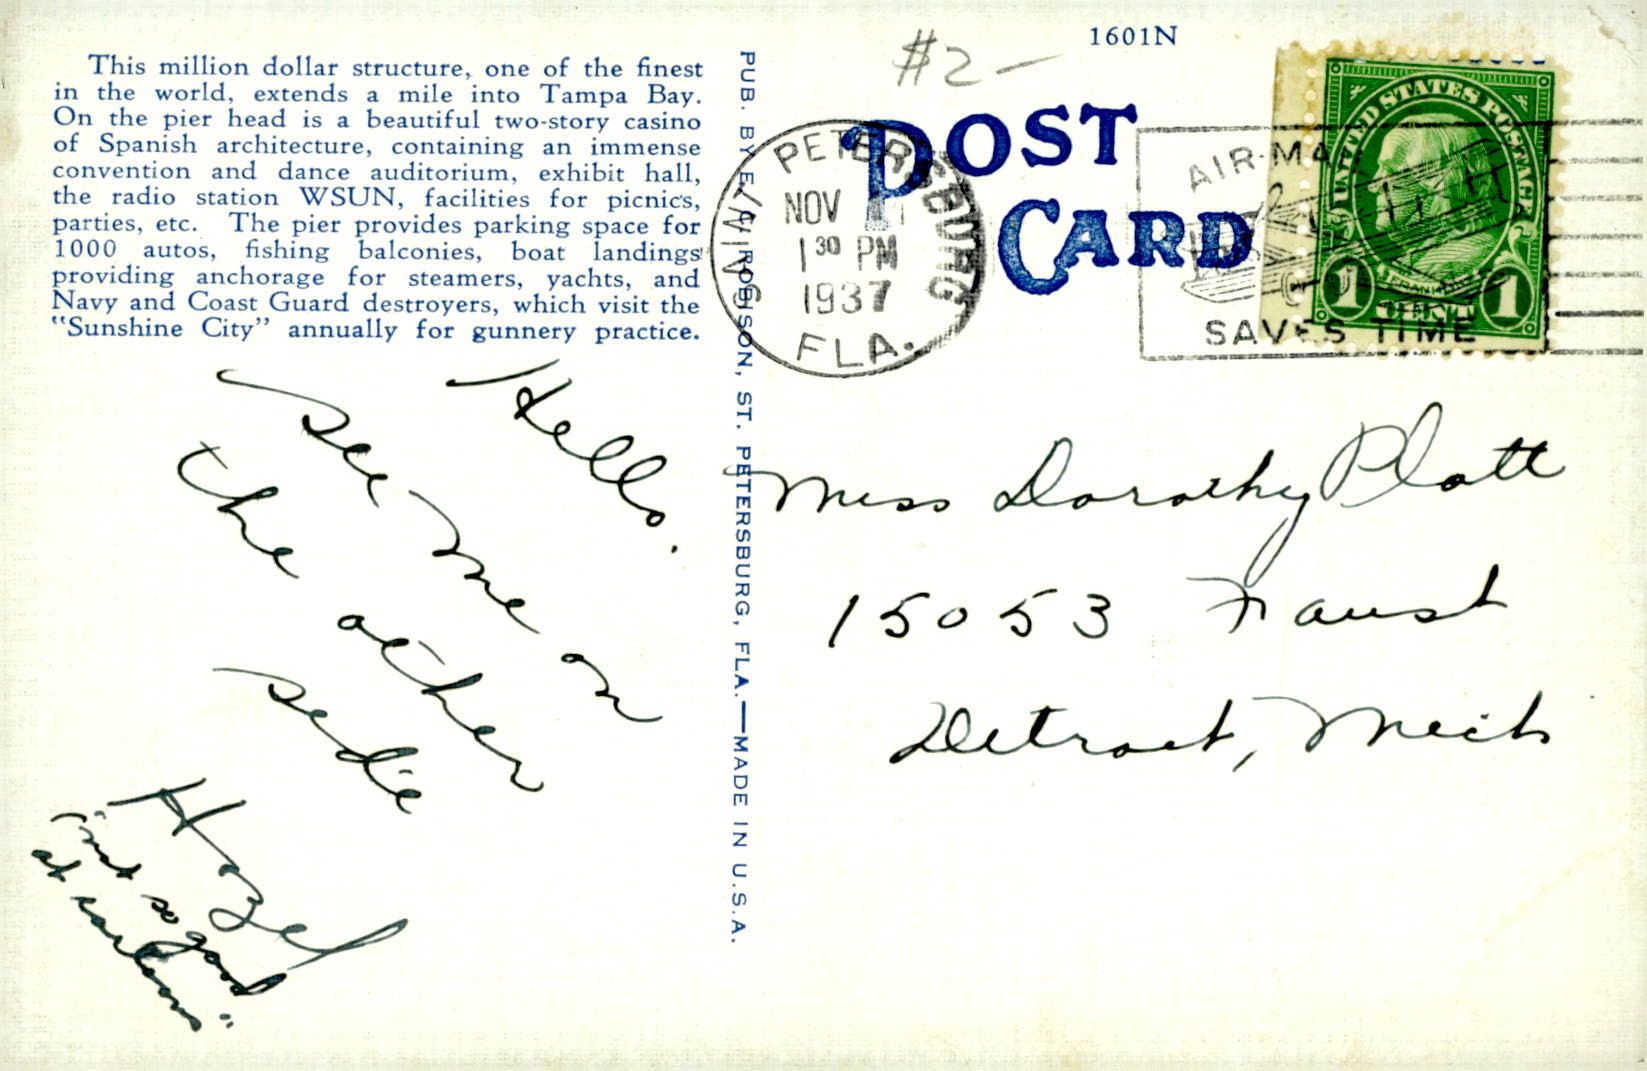 This million dollar structure, one of the finest
in the world, extends a mile into Tampa Bay.
On the pier head is a beautiful two-story casino
of Spanish architecture, containing an immense
convention and dance auditorium, exhibit hall,
the radio station WSUN, facilities for picnics,
parties, etc. The pier provides parking space for
1000 autos, fishing balconies, boat landings
providing anchorage for steamers, yachts, and
Navy and Coast Guard destroyers, which visit the
"Sunshine City" annually for gunnery practice.
Hello.
See me on
the other
side
Hazel
"not so good
at cartoons"
PUB. BY ROBINSON, ST. PETERSBURG, FLA.—MADE IN U.S.A.
#2—
1601N
POST
CARD
PETERSBURG
NOV
1 30 PM
1937
FLA.
AIR-MAIL
SAVES TIME
UNITED STATES POSTAGE
FRANKLIN
1 CENT 1
Miss Dorothy Platt
15053 Faust
Detroit, Mich